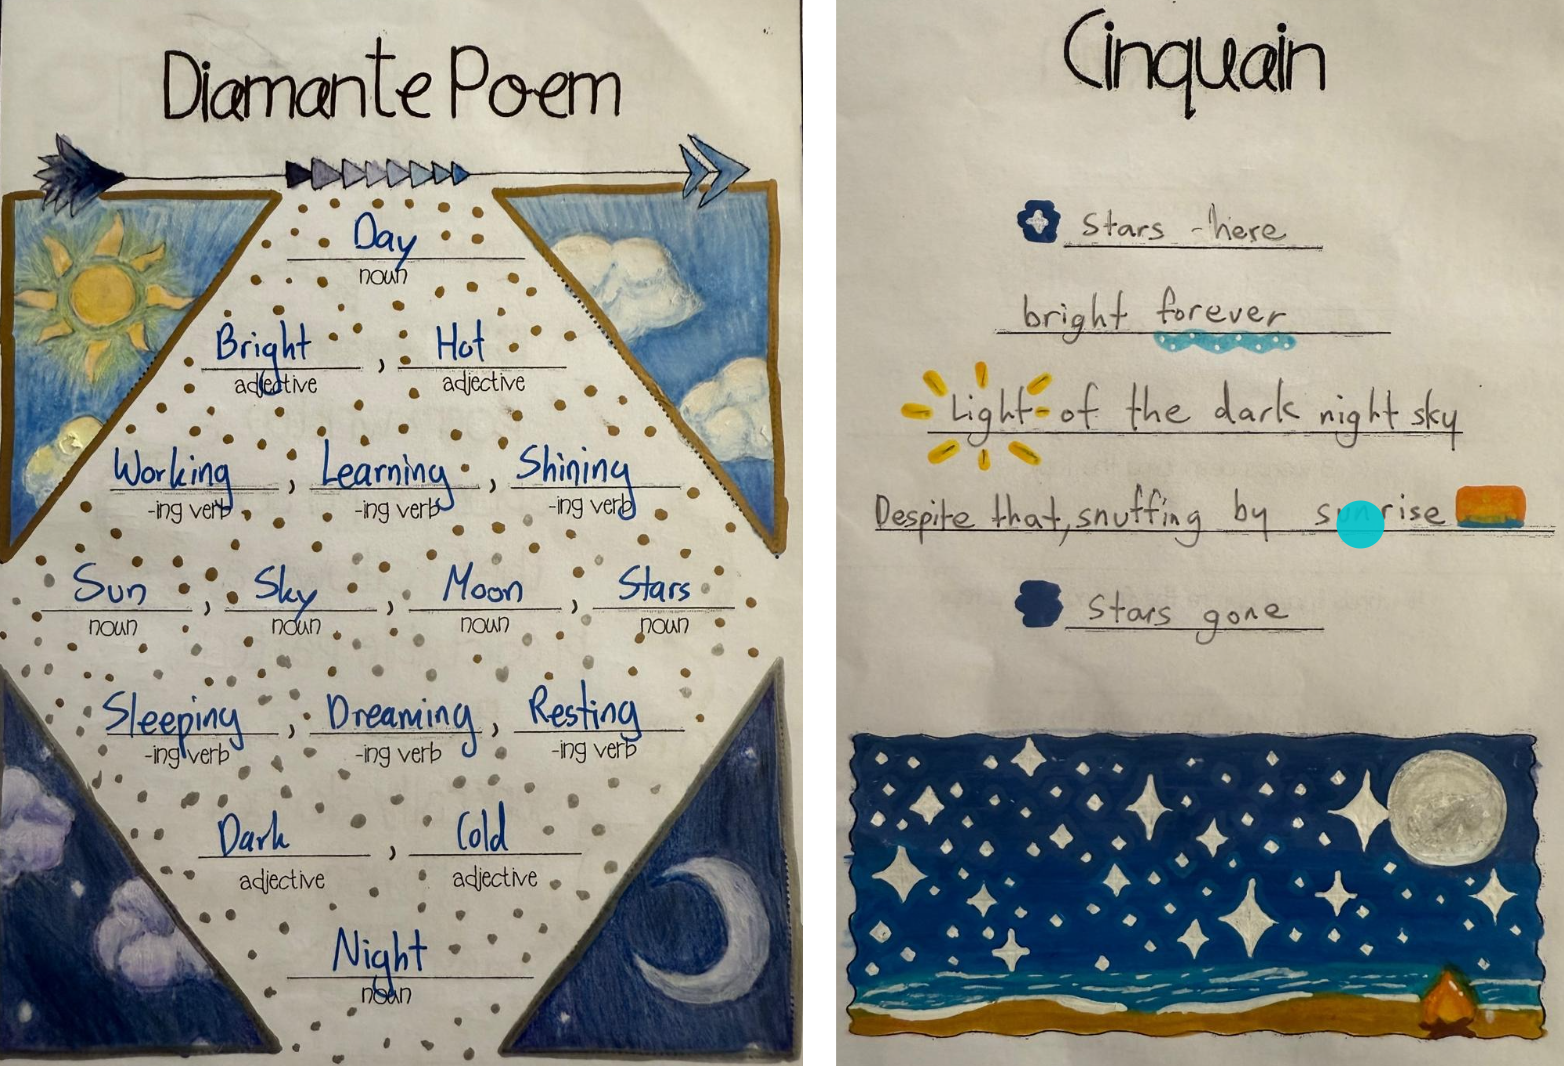 Diamante Poem
Day
noun
Bright, Hot
adjective adjective
Working, Learning, Shining
-ing verb -ing verb -ing verb
Sun, Sky, Moon, Stars
noun noun noun noun
Sleeping, Dreaming, Resting
-ing verb -ing verb -ing verb
Dark, Cold
adjective adjective
Night
noun
Cinquain
Stars -here
bright forever
Light of the dark night sky
Despite that, snuffing by sunrise
Stars gone